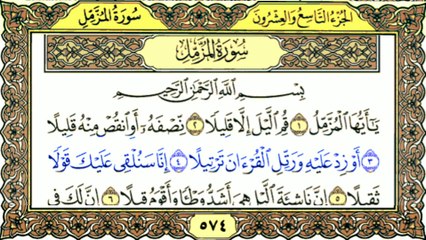 سُورَةُ المُزَّمِّل
الجُزْءُ التَّاسِعُ وَالعِشْرُونَ
سُورَةُ المُزَّمِّل
بِسْمِ اللَّهِ الرَّحْمَٰنِ الرَّحِيمِ
يَٰٓأَيُّهَا ٱلْمُزَّمِّلُ ١ قُمِ ٱلَّيْلَ إِلَّا قَلِيلًا ٢ نِّصْفَهُۥٓ أَوِ ٱنقُصْ مِنْهُ قَلِيلًا
٣ أَوْ زِدْ عَلَيْهِ وَرَتِّلِ ٱلْقُرْءَانَ تَرْتِيلًا ٤ إِنَّا سَنُلْقِى عَلَيْكَ قَوْلًا
ثَقِيلًا ٥ إِنَّ نَاشِئَةَ ٱلَّيْلِ هِىَ أَشَدُّ وَطْـًٔا وَأَقْوَمُ قِيلًا ٦ إِنَّ لَكَ فِى
٥٧٤